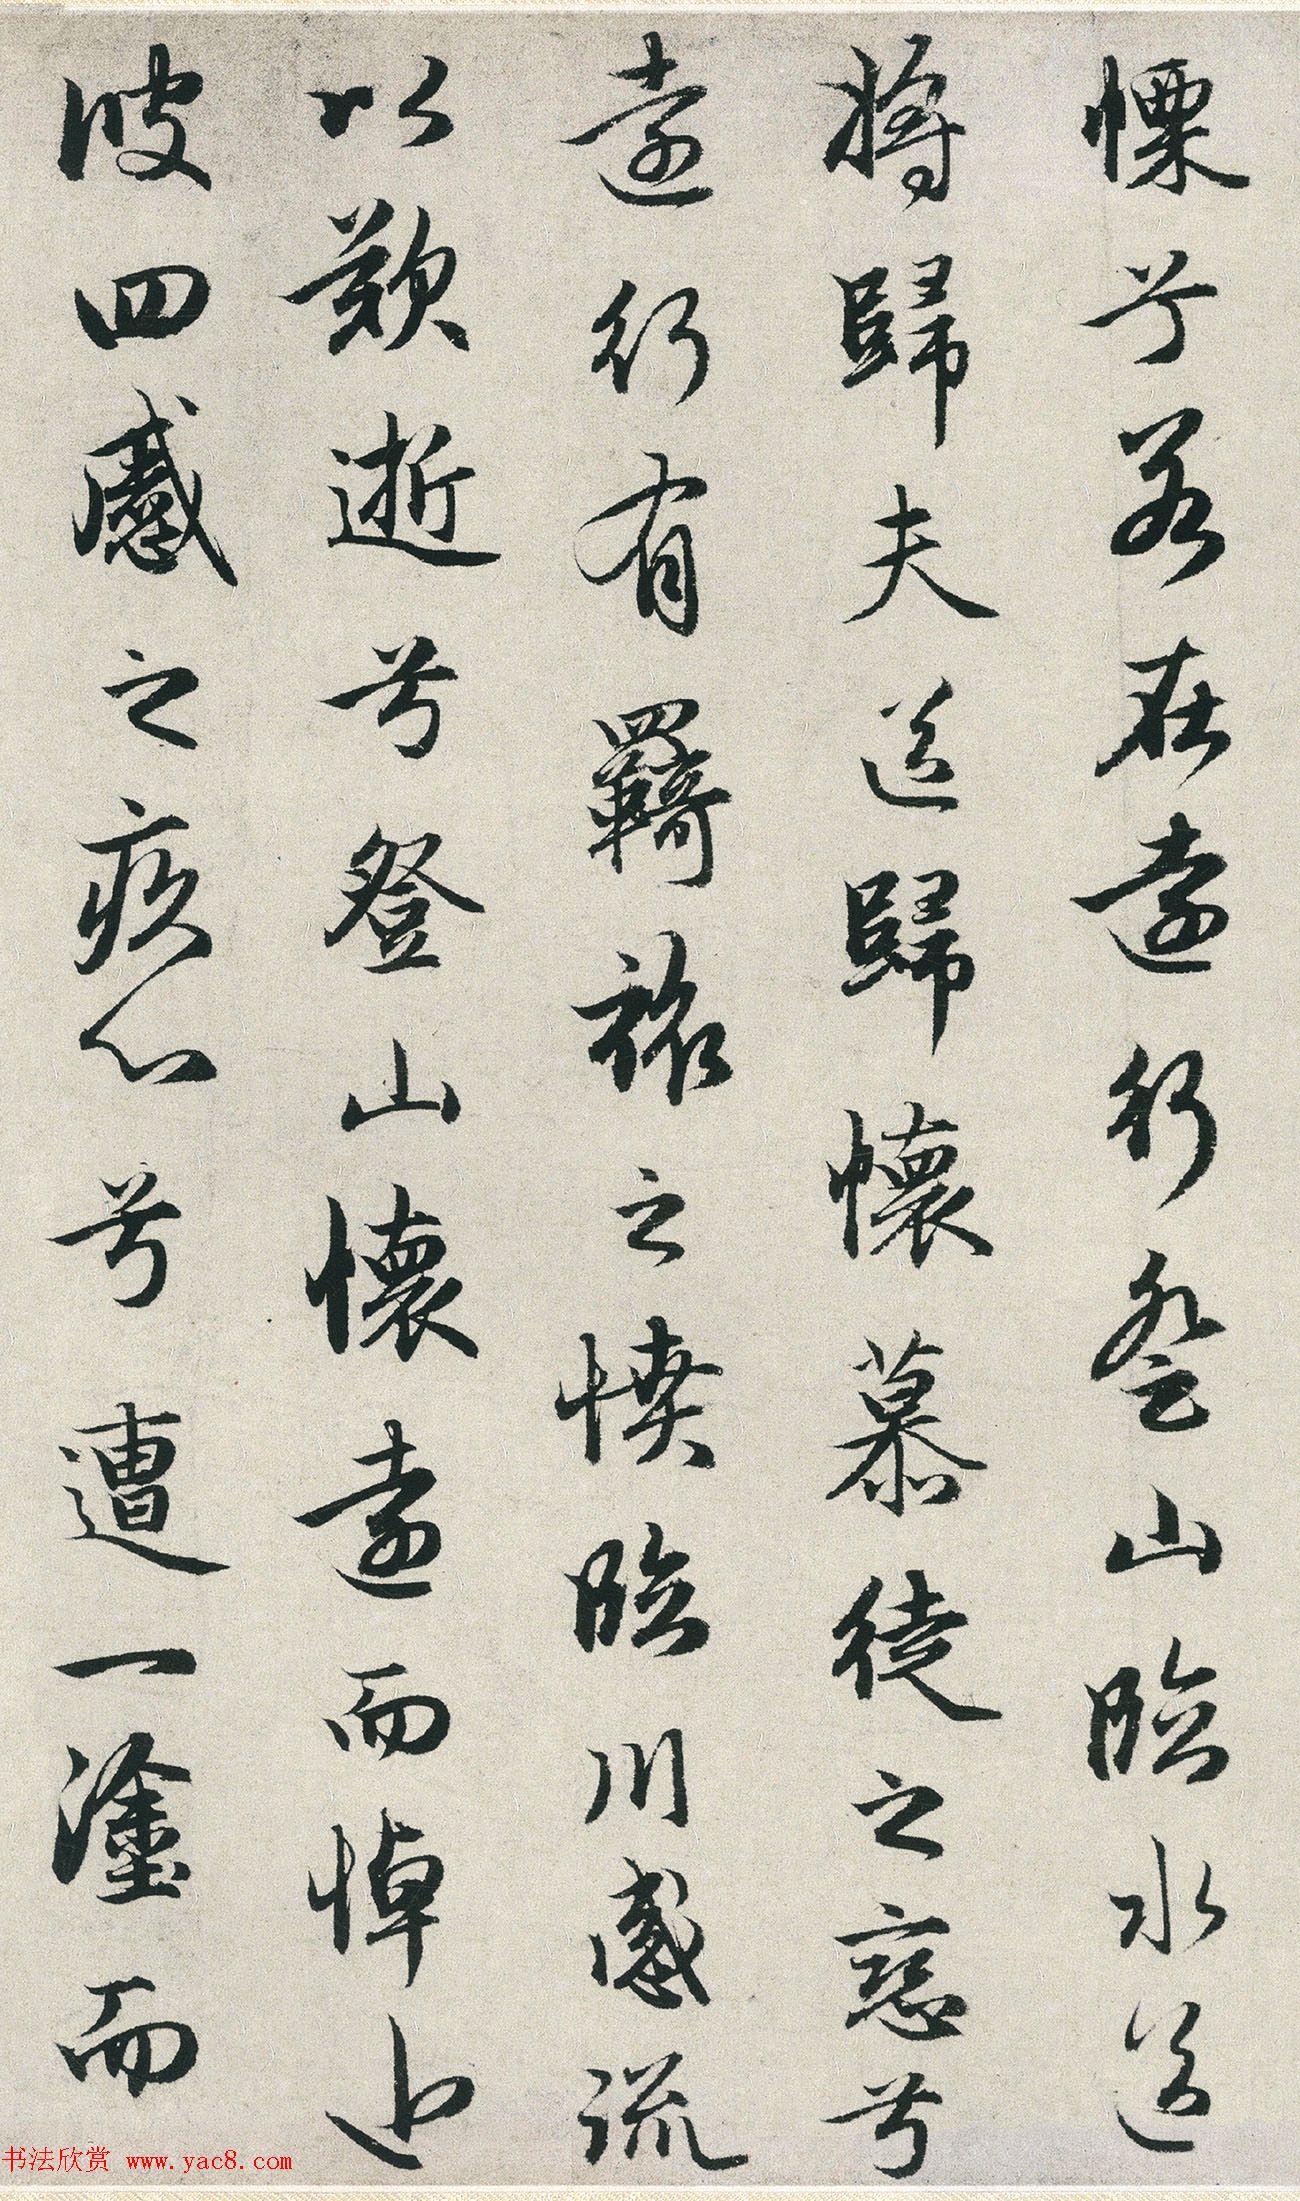 慄兮若在遠行登山臨水送
將歸夫送歸懷慕徒之戀兮
遠行有羈旅之憤臨川感流
以歎逝兮登山懷遠而悼近
彼四慼之疚心兮遭一塗而
书法欣赏 www.yac8.com